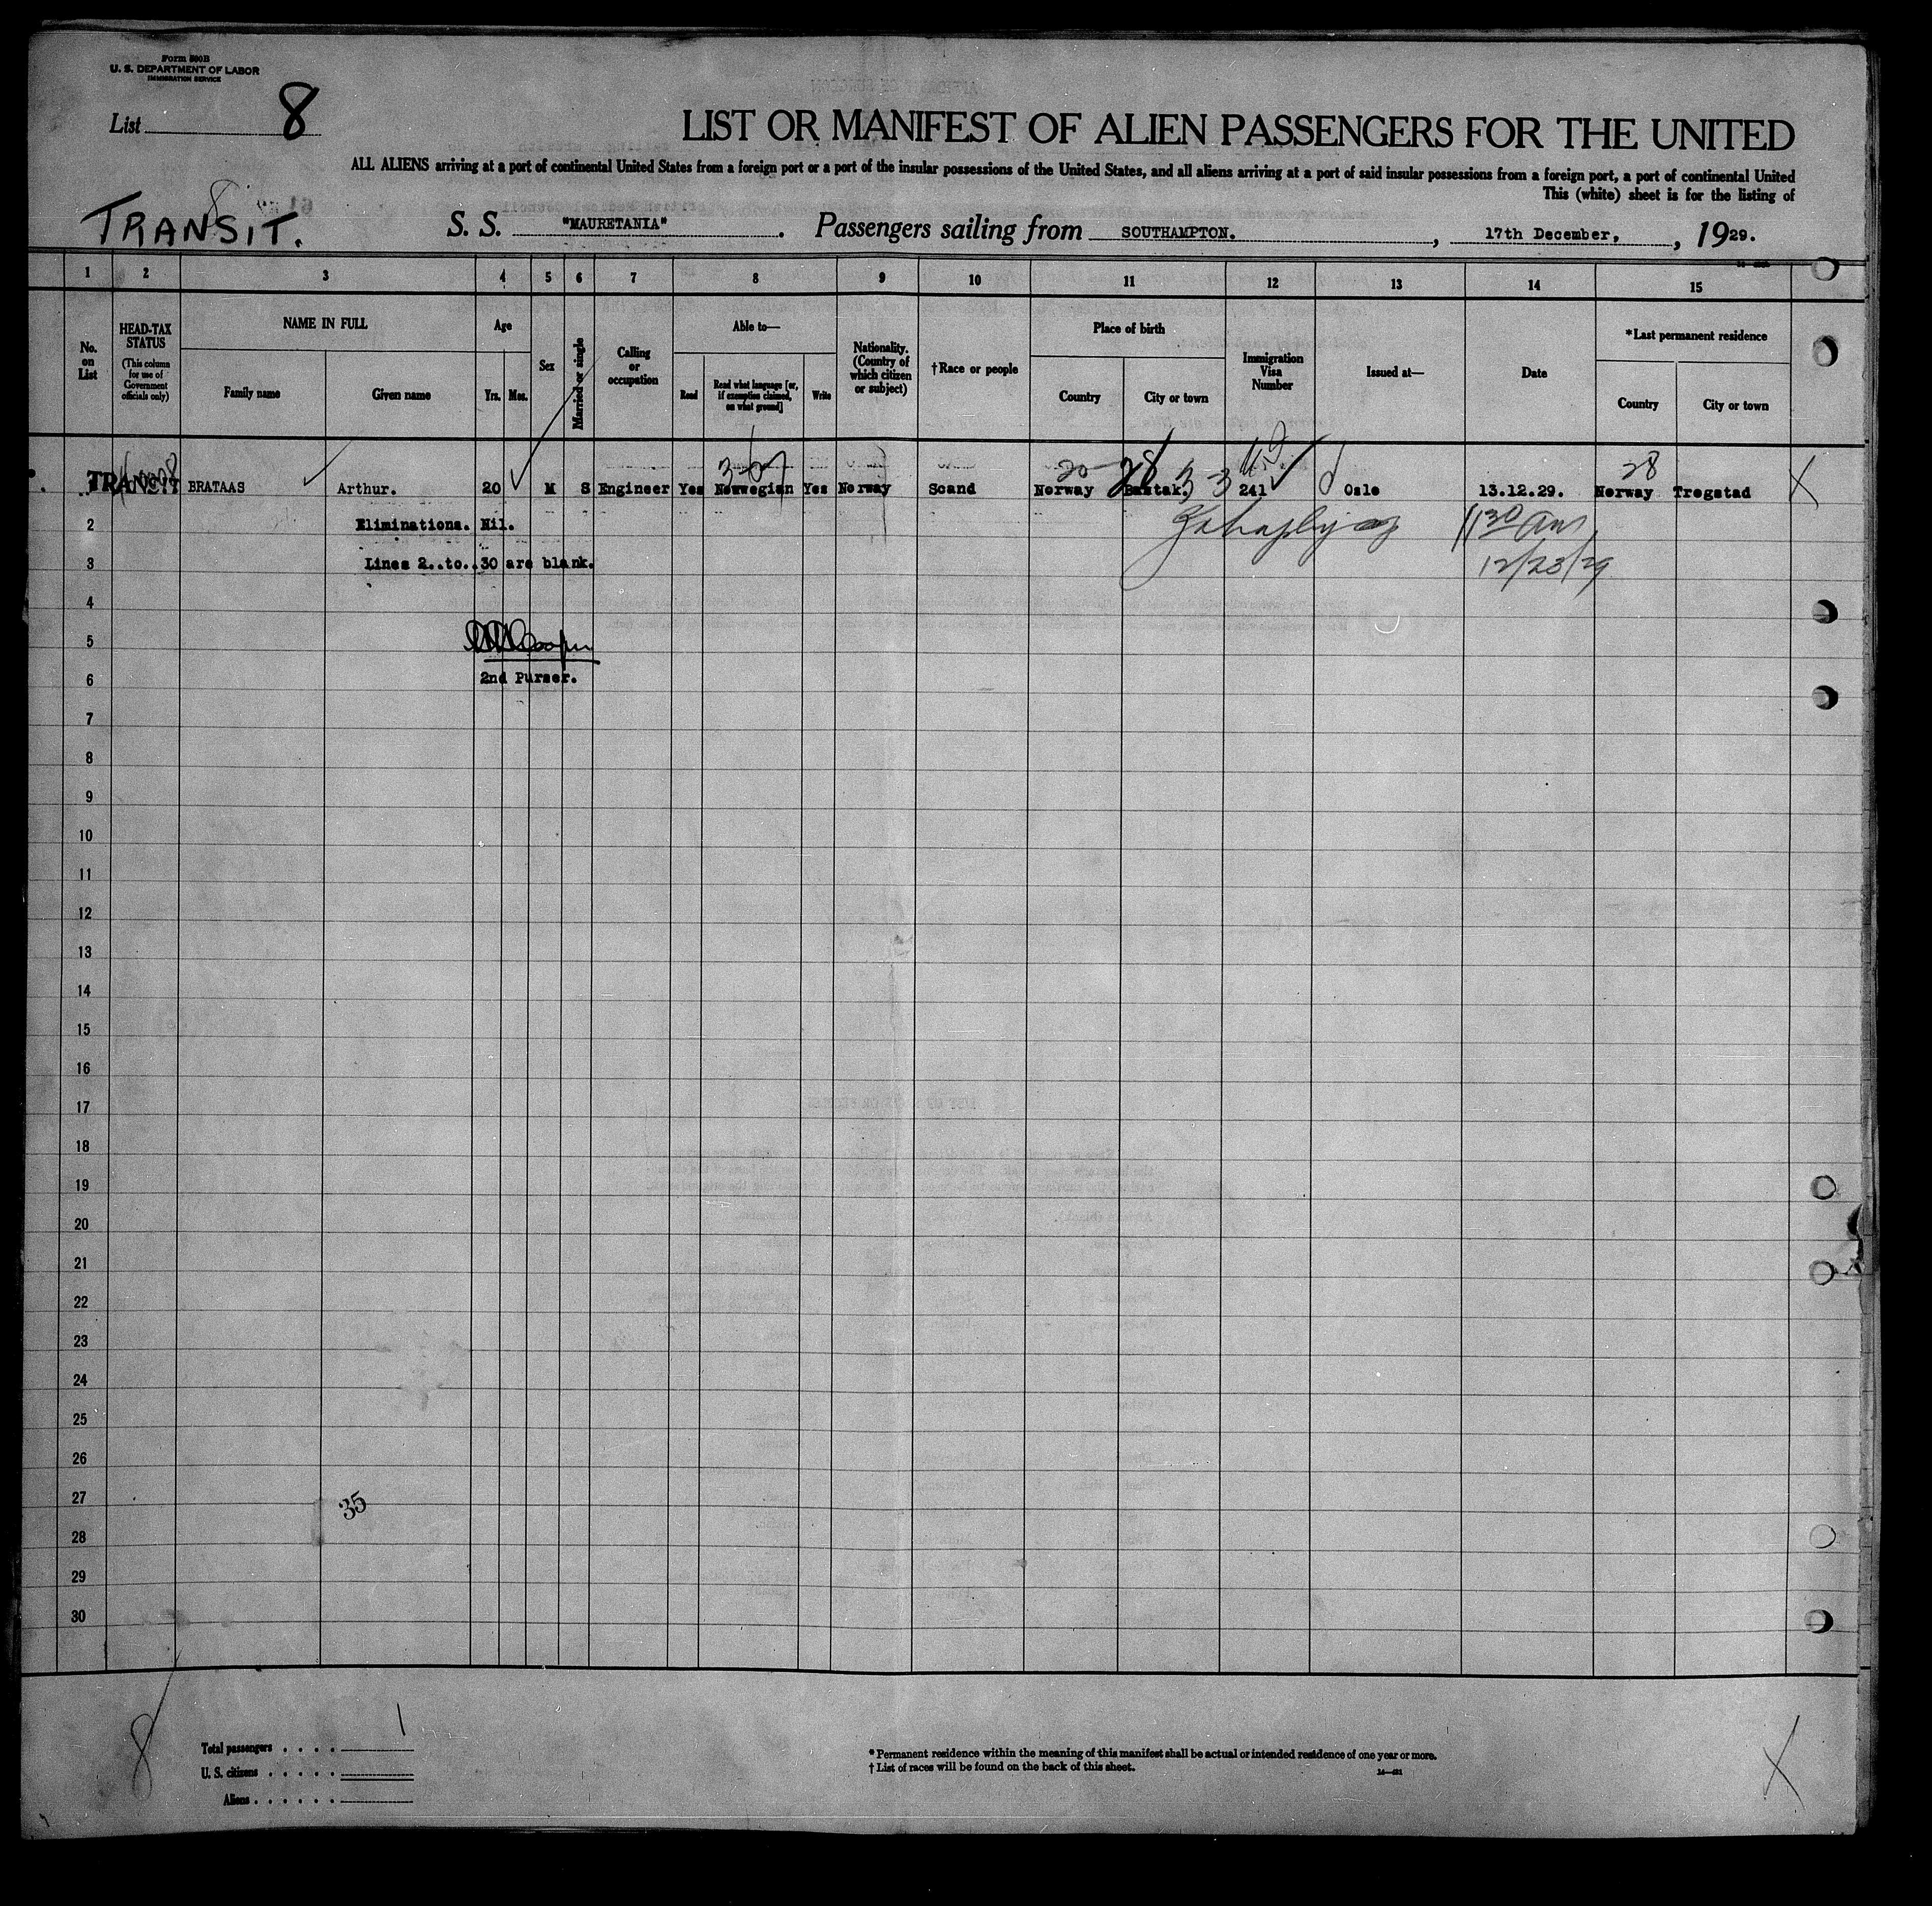 Form 500B
U. S. DEPARTMENT OF LABOR
IMMIGRATION SERVICE
List 8
LIST OR MANIFEST OF ALIEN PASSENGERS FOR THE UNITED
ALL ALIENS arriving at a port of continental United States from a foreign port or a port of the insular possessions of the United States, and all aliens arriving at a port of said insular possessions from a foreign port, a port of continental United
This (white) sheet is for the listing of
8
TRANSIT. S. S. "MAURETANIA". Passengers sailing from SOUTHAMPTON., 17th December,, 1929.
1 2 3 4 5 6 7 8 9 10 11 12 13 14 15
No. on List
HEAD-TAX STATUS (This column for use of Government officials only)
NAME IN FULL
Family name Given name
Age
Yrs. Mos.
Sex
Married or single
Calling or occupation
Able to—
Read Read what language [or, if exemption claimed, on what ground] Write
Nationality. (Country of which citizen or subject)
†Race or people
Place of birth
Country City or town
Immigration Visa Number
Issued at—
Date
*Last permanent residence
Country City or town
20 28 3 3 28
TRANSIT BRATAAS Arthur. 20 M S Engineer Yes Norwegian Yes Norway Scand Norway 241 Oslo 13.12.29. Norway Trogstad X
2 Eliminations. Nil. 1130 am
3 Lines 2..to..30 are blank. 12/23/29
4
5 Cooper
6 2nd Purser.
7
8
9
10
11
12
13
14
15
16
17
18
19
20
21
22
23
24
25
26
27 35
28
29
30
8
Total passengers 1
U. S. citizens
Aliens
* Permanent residence within the meaning of this manifest shall be actual or intended residence of one year or more.
† List of races will be found on the back of this sheet.
X